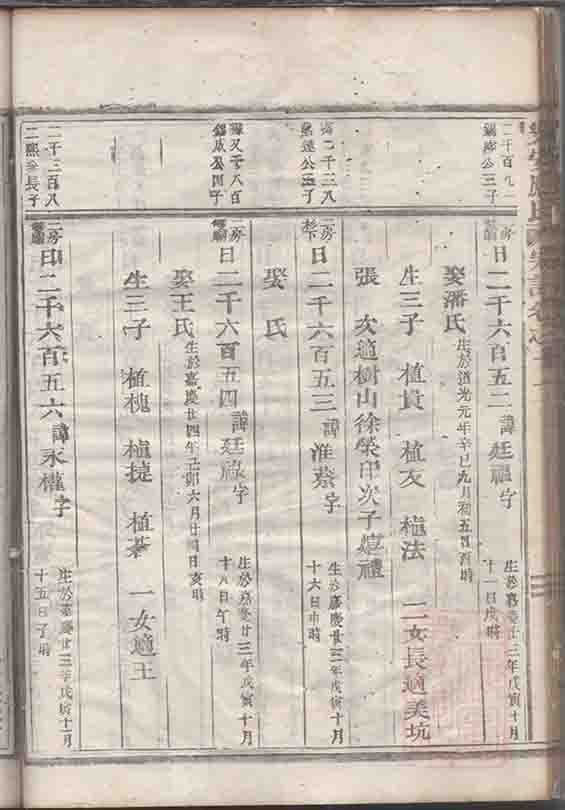 二千百九一
錫 公三子
二房
日二千六百五二 諱廷福 字
生於嘉慶廿三年戊寅十月
十一日戌時
娶潘氏
生於道光元年辛巳九月初五日酉時
生三子 植貴 植友 植法 一二女長適美坑
張 次適樹山徐榮印次子 禮
二千三八
公三子
二房
日二千六百五三 諱淮 字
生於嘉慶廿三年戊寅十月
十六日申時
娶 氏
二千八百
錫成公四子
二房
日二千六百五四 諱廷祿 字
生於嘉慶廿三年戊寅十月
十八日午時
娶王氏
生於嘉慶廿四年己卯六月廿 日亥時
生三子 植槐 植 植 一女適王
二千三百八
二熙 長子
二房
日二千六百五六 諱永權 字
生於嘉慶廿三年戊寅十一月
十五日子時